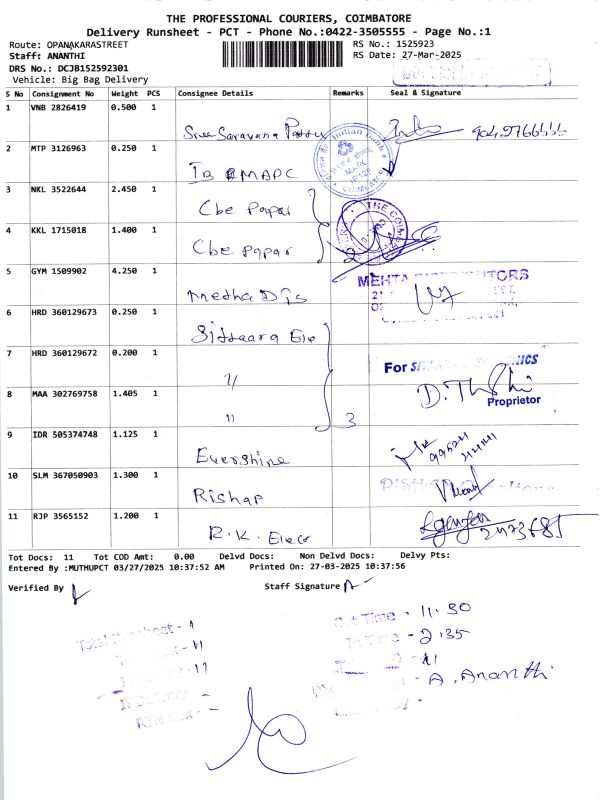 THE PROFESSIONAL COURIERS, COIMBATORE
Delivery Runsheet - PCT - Phone No.:0422-3505555 - Page No.:1
Route: OPANAKARASTREET RS No.: 1525923
Staff: ANANTHI RS Date: 27-Mar-2025
DRS No.: DCJB152592301
Vehicle: Big Bag Delivery
S No Consignment No Weight PCS Consignee Details Remarks Seal & Signature
1 VNB 2826419 0.500 1
Sree Saravana
2 MTP 3126963 0.250 1
Indian Bank
IB MAPC
COIMBATORE
3 NKL 3522644 2.450 1
Cbe Papar
4 KKL 1715018 1.400 1
THE COIM
Cbe papar
5 GYM 1509902 4.250 1
MEHTA DISTRIBUTORS
Metha Dis
6 HRD 360129673 0.250 1
Sittaara Ele
7 HRD 360129672 0.200 1
For
"
8 MAA 302769758 1.405 1
Proprietor
" 3
9 IDR 505374748 1.125 1
Evershine
10 SLM 367050903 1.300 1
Rishap
11 RJP 3565152 1.200 1
R.K. Elect
Tot Docs: 11 Tot COD Amt: 0.00 Delvd Docs: Non Delvd Docs: Delvy Pts:
Entered By :MUTHUPCT 03/27/2025 10:37:52 AM Printed On: 27-03-2025 10:37:56
Verified By Staff Signature
Out Time - 11.30
Total Runsheet - 1
In Time - 2.35
A. Ananthi